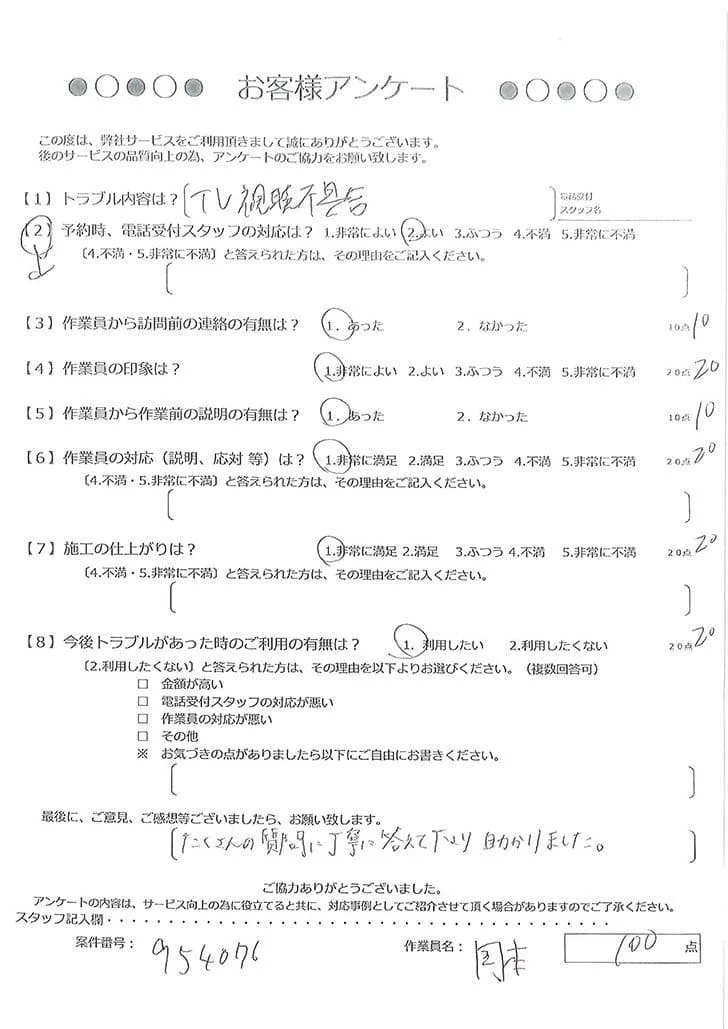 お客様アンケート
この度は、弊社サービスをご利用頂きまして誠にありがとうございます。
後のサービスの品質向上の為、アンケートのご協力をお願い致します。
【1】トラブル内容は? 〔TV視聴不具合〕 電話受付
スタッフ名
【2】予約時、電話受付スタッフの対応は? 1.非常によい 2.よい 3.ふつう 4.不満 5.非常に不満
〔4.不満・5.非常に不満〕と答えられた方は、その理由をご記入ください。
【3】作業員から訪問前の連絡の有無は? 1. あった 2. なかった 10点 10
【4】作業員の印象は? 1.非常によい 2.よい 3.ふつう 4.不満 5.非常に不満 20点 20
【5】作業員から作業前の説明の有無は? 1. あった 2. なかった 10点 10
【6】作業員の対応(説明、応対 等)は? 1.非常に満足 2.満足 3.ふつう 4.不満 5.非常に不満 20点 20
〔4.不満・5.非常に不満〕と答えられた方は、その理由をご記入ください。
【7】施工の仕上がりは? 1.非常に満足 2.満足 3.ふつう 4.不満 5.非常に不満 20点 20
〔4.不満・5.非常に不満〕と答えられた方は、その理由をご記入ください。
【8】今後トラブルがあった時のご利用の有無は? 1. 利用したい 2.利用したくない 20点 20
〔2.利用したくない〕と答えられた方は、その理由を以下よりお選びください。(複数回答可)
□ 金額が高い
□ 電話受付スタッフの対応が悪い
□ 作業員の対応が悪い
□ その他
※ お気づきの点がありましたら以下にご自由にお書きください。
最後に、ご意見、ご感想等ございましたら、お願い致します。
〔たくさんの質問に丁寧に答えて下さり 助かりました。〕
ご協力ありがとうございました。
アンケートの内容は、サービス向上の為に役立てると共に、対応事例としてご紹介させて頂く場合がありますのでご了承ください。
スタッフ記入欄・・・・・・・・・・・・・・・・・・・・・・・・・・・・・・・・・・・
案件番号: 954076 作業員名: 国本 100 点